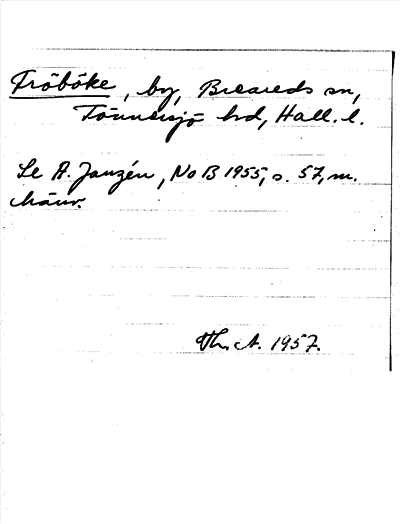 Fröböke, by, Breareds sn,
Tönnersjö hd, Hall. l.
Se A. Janzén, NoB 1955, s. 57, m.
hänv.
Th. A. 1957.